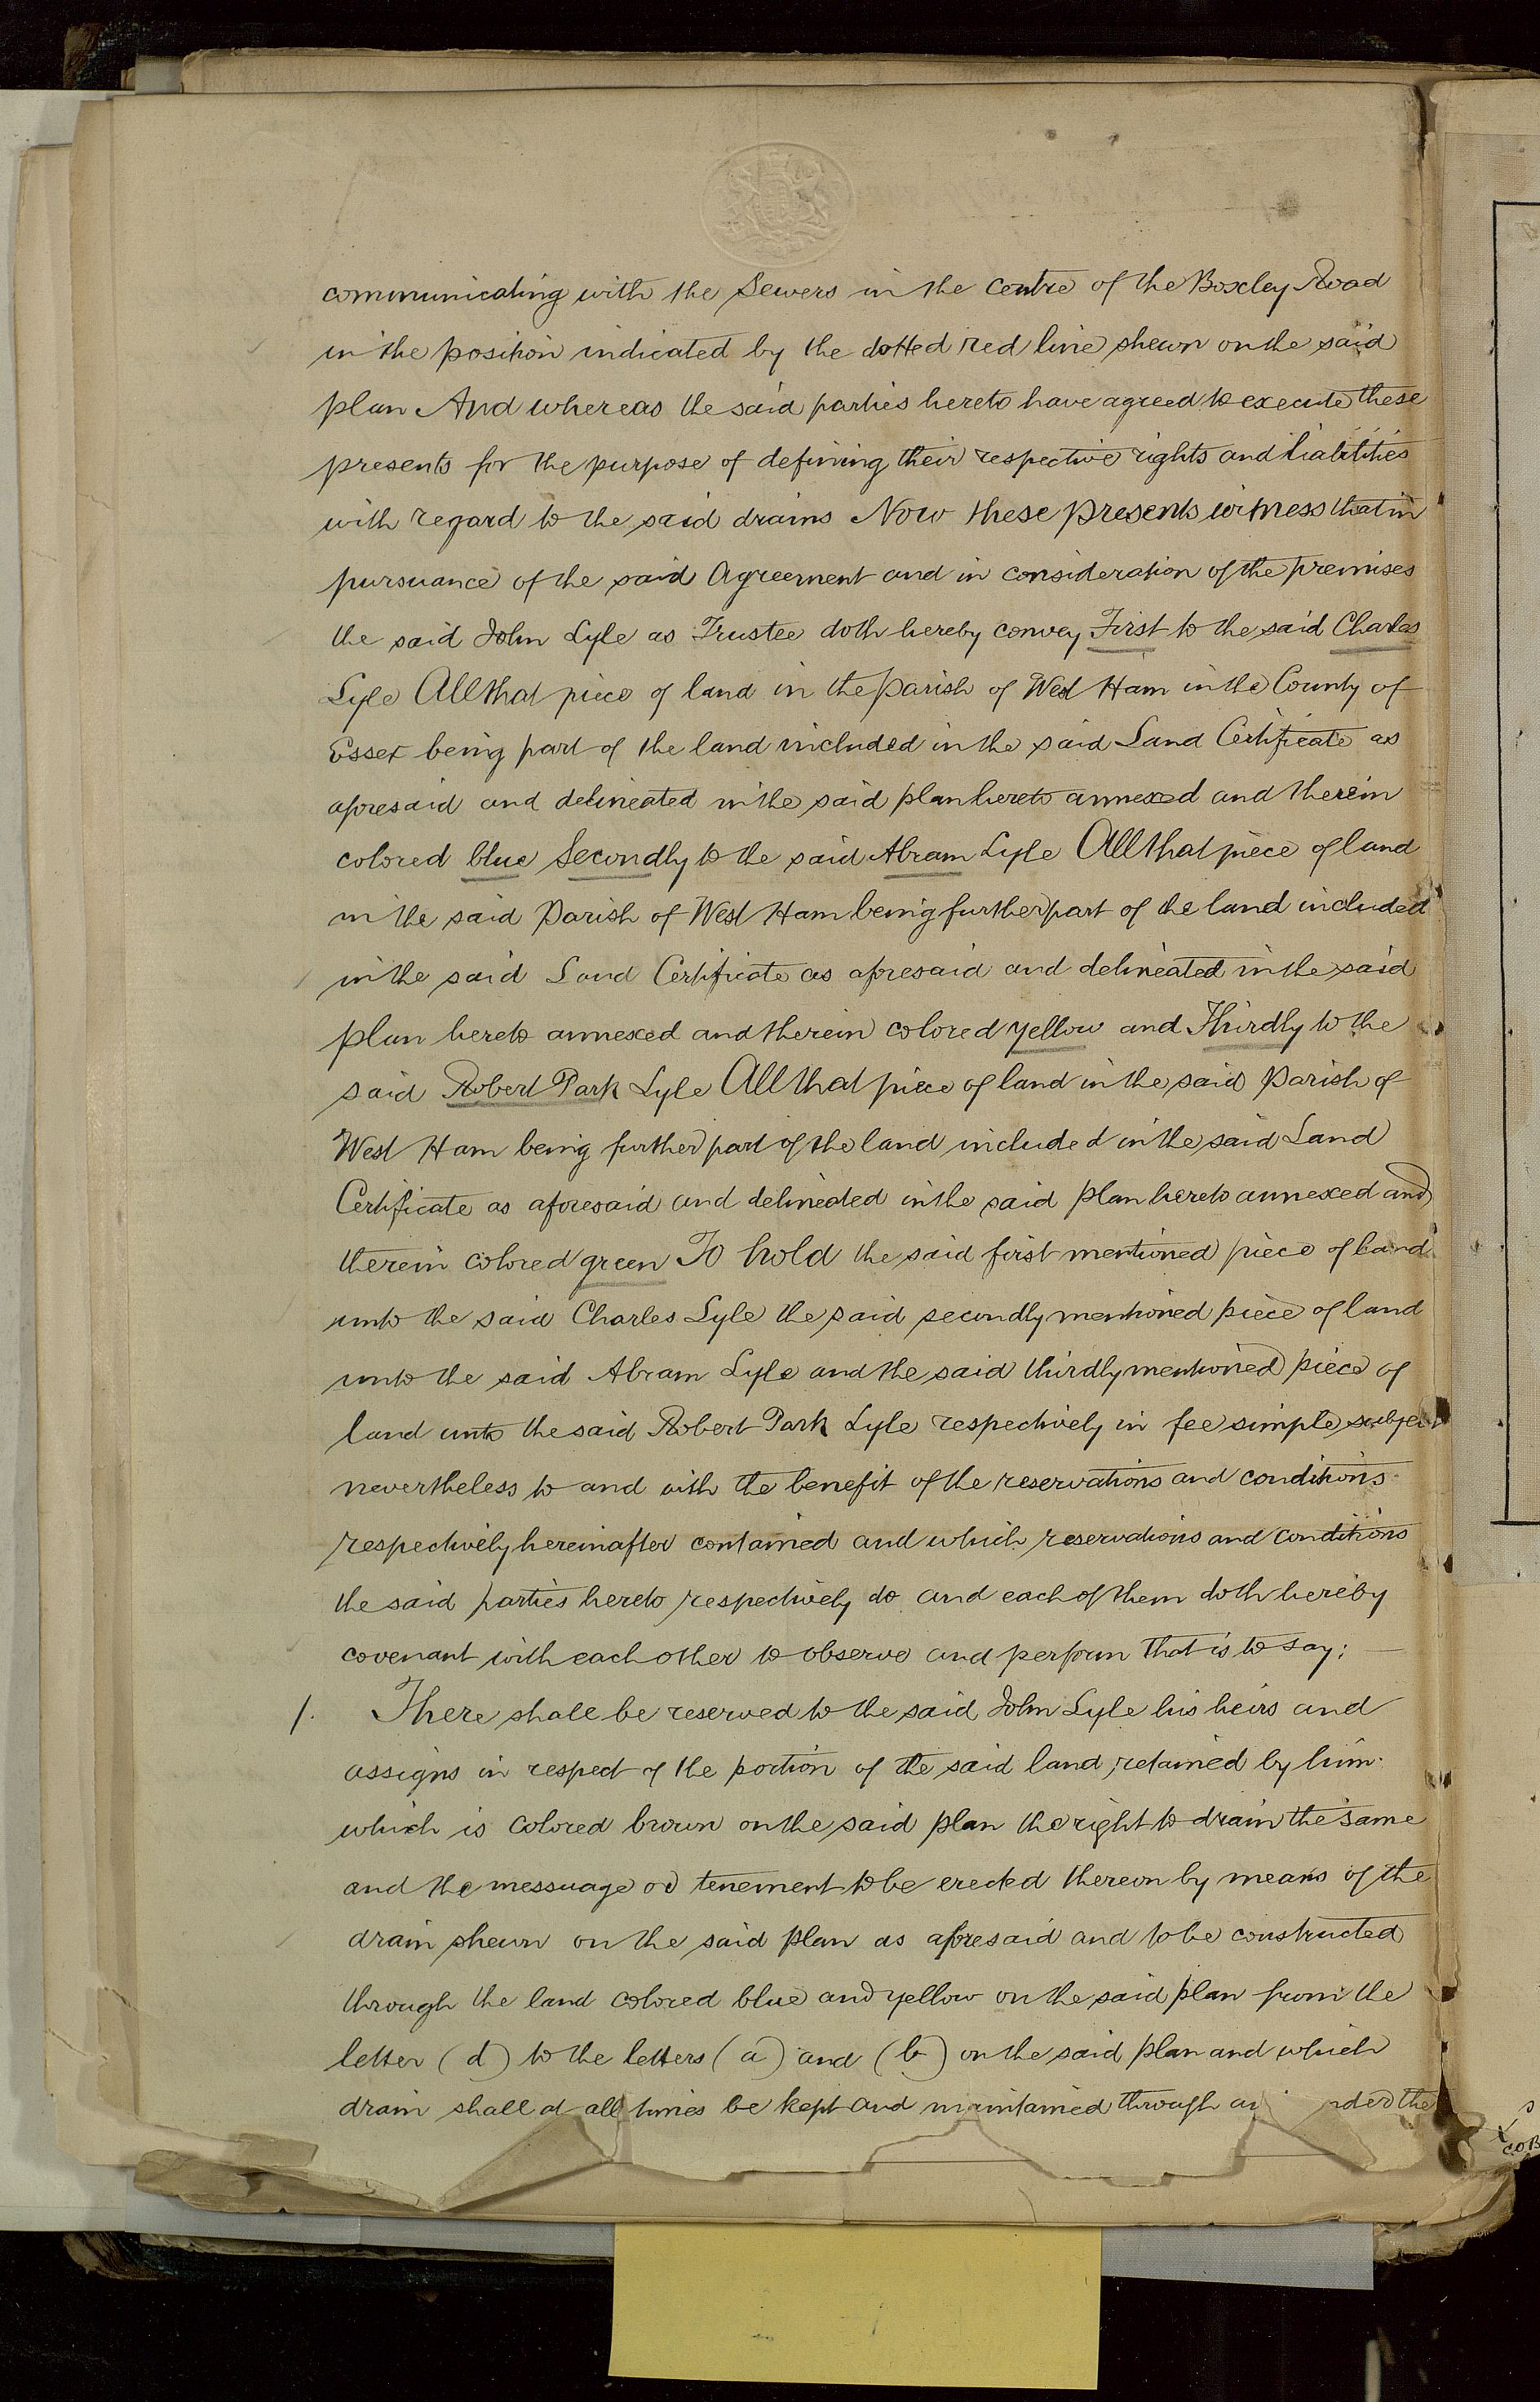 communicating with the Sewers in the Centre of the Boxley Road
in the position indicated by the dotted red line shewn on the said
plan And whereas the said parties hereto have agreed to execute these
presents for the purpose of defining their respective rights and liabilities
with regard to the said drains Now these presents witness that in
pursuance of the said Agreement and in consideration of the premises
the said John Lyle as Trustee doth hereby convey First to the said Charles
Lyle All that piece of land in the Parish of West Ham in the County of
Essex being part of the land included in the said Land Certificate as
aforesaid and delineated in the said plan hereto annexed and therein
colored blue Secondly to the said Abram Lyle All that piece of land
in the said Parish of West Ham being further part of the land included
in the said Land Certificate as aforesaid and delineated in the said
plan hereto annexed and therein colored yellow and Thirdly to the
said Robert Park Lyle All that piece of land in the said Parish of
West Ham being further part of the land included in the said Land
Certificate as aforesaid and delineated in the said plan hereto annexed and
therein colored green To hold the said first mentioned piece of land
unto the said Charles Lyle the said secondly mentioned piece of land
unto the said Abram Lyle and the said thirdly mentioned piece of
land unto the said Robert Park Lyle respectively in fee simple subject
nevertheless to and with the benefit of the reservations and conditions
respectively hereinafter contained and which reservations and conditions
the said parties hereto respectively do and each of them doth hereby
covenant with each other to observe and perform that is to say;
1. There shall be reserved to the said John Lyle his heirs and
assigns in respect of the portion of the said land retained by him
which is colored brown on the said plan the right to drain the same
and the messuage or tenement to be erected thereon by means of the
drain shewn on the said plan as aforesaid and to be constructed
through the land colored blue and yellow on the said plan from the
letter (d) to the letters (a) and (b) on the said plan and which
drain shall at all times be kept and maintained through the